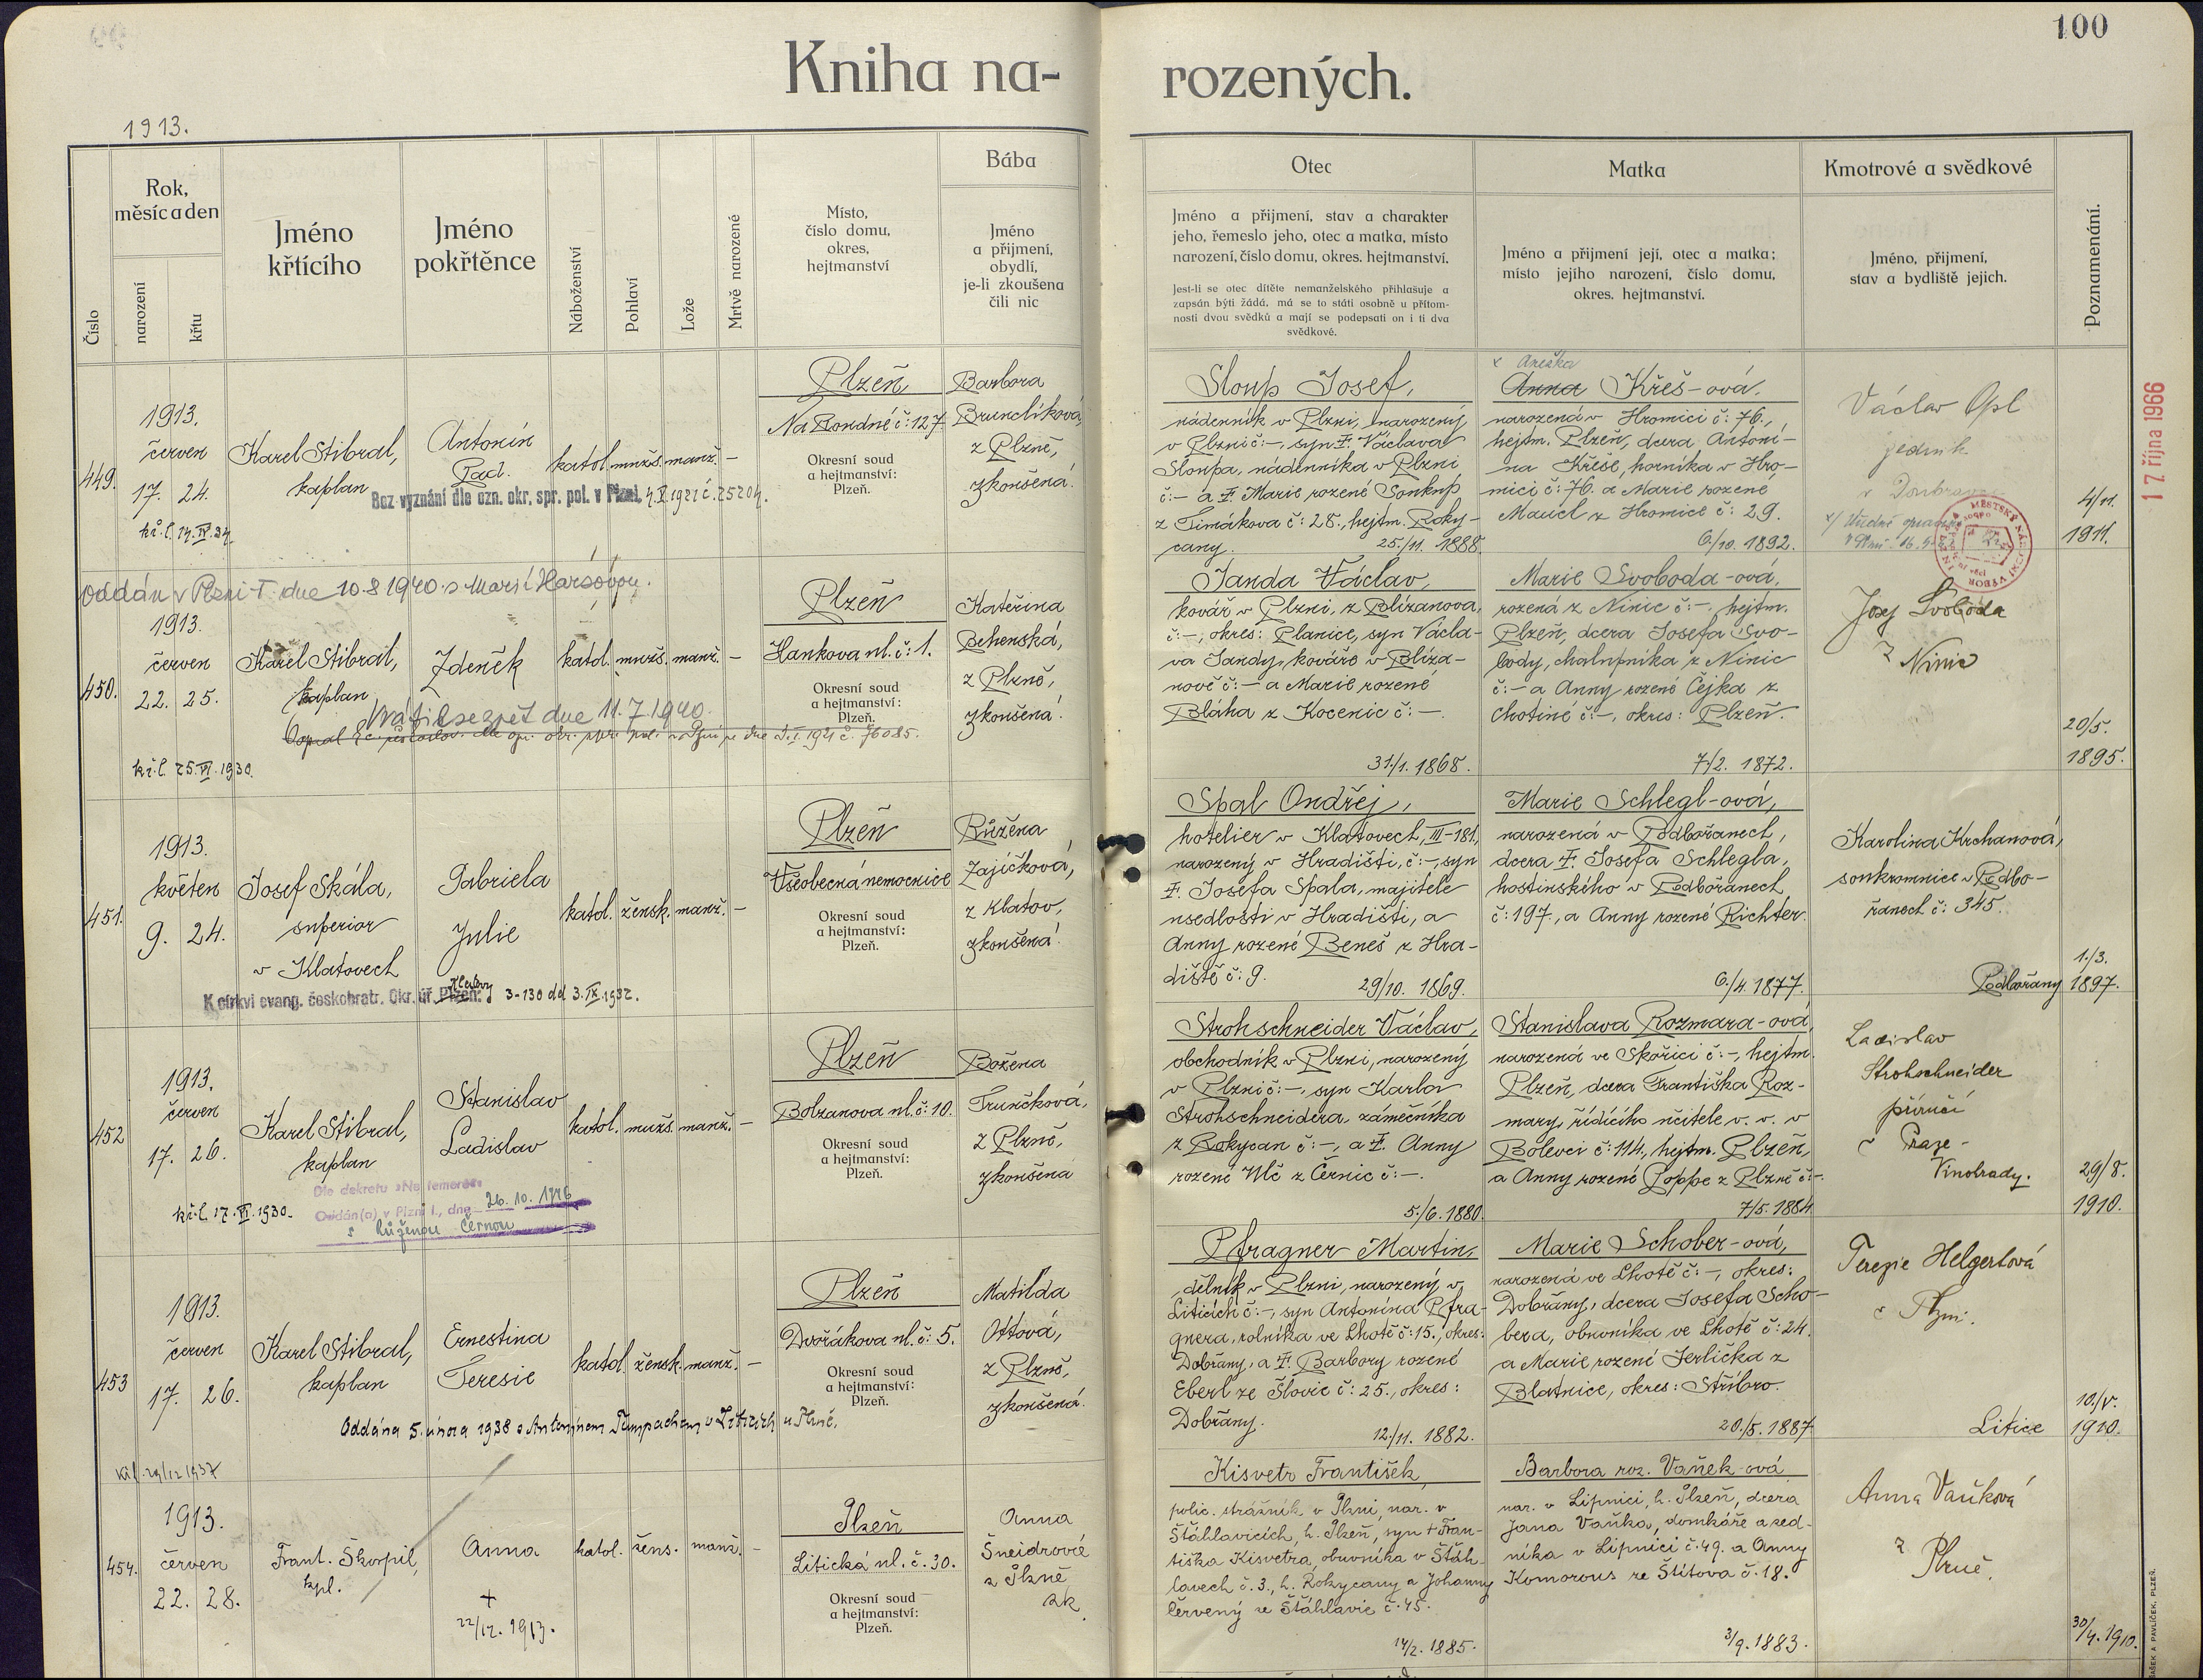 100
Kniha na-
rozených.
1913.
Číslo
Rok,
měsíc a den
narození
křtu
Jméno
křtícího
Jméno
pokřtěnce
Náboženství
Pohlaví
Lože
Mrtvě narozené
Místo,
číslo domu,
okres,
hejtmanství
Bába
Jméno
a přijmení,
obydlí,
je-li zkoušena
čili nic
Otec
Jméno a přijmení, stav a charakter
jeho, řemeslo jeho, otec a matka, místo
narození, číslo domu, okres. hejtmanství.
Jest-li se otec dítěte nemanželského přihlašuje a
zapsán býti žádá, má se to státi osobně u přítom-
nosti dvou svědků a mají se podepsati on i ti dva
svědkové.
Matka
Jméno a přijmení její, otec a matka;
místo jejího narození, číslo domu,
okres. hejtmanství.
Kmotrové a svědkové
Jméno, přijmení,
stav a bydliště jejich.
Poznamenání.
449.
1913.
červen
17. 24.
kř.l. 14.IV.34.
Karel Stibral,
kaplan
Antonín
Bez vyznání dle ozn. okr. spr. pol. v Plzni,
katol. mužs. manž. –
Plzeň
Na Rondně č: 127.
Okresní soud
a hejtmanství:
Plzeň.
Barbora
Brunclíková,
z Plzně,
zkoušená.
Sloup Josef,
nádenník v Plzni, narozený
v Plzni č:–, syn Ŧ. Václava
Sloupa, nádenníka v Plzni
č:– a Ŧ. Marie rozené Soukup
z Timákova č: 28., hejtm. Roky-
cany.
25./11. 1888.
x Anežka
Anna Křeš-ová.
narozená v Hromici č: 76.,
hejtm. Plzeň, dcera Antoní-
na Křeše, horníka v Hro-
mici č: 76. a Marie rozené
Maucl z Hromice č: 29.
6./10. 1892.
Václav Opl
4/11.
1911.
17 října 1966
Oddán v Plzni I. dne 10.8 1940 s Marií
450.
1913.
červen
22. 25.
kř.l. 25.VI.1930.
Karel Stibral,
kaplan
Zdeněk
Vrátil se zpět dne 11.7.1940.
katol. mužs. manž. –
Plzeň
Hankova ul. č: 1.
Okresní soud
a hejtmanství:
Plzeň.
Kateřina
Behenská,
z Plzně,
zkoušená.
Janda Václav,
kovář v Plzni, z Blízanova,
č:–, okres: Planice, syn Václa-
va Jandy, kováře v Blíza-
nově č:– a Marie rozené
Bláha z Kocenic č:–.
31./1. 1868.
Marie Svoboda-ová,
rozená z Ninic č:–, hejtm.
Plzeň, dcera Josefa Svo-
body, chalupníka z Ninic
č:– a Anny rozené Čejka z
Chotiné č:–, okres: Plzeň.
7./2. 1872.
Josef Svoboda
z Ninic
20/5.
1895.
451.
1913.
květen
9. 24.
Josef Skála,
superior
v Klatovech
Gabriela
Julie
Klatovy
K církvi evang. českobratr. Okr. úř. Plzeň: 3-130 dd 3.IX.1932.
katol. žensk. manž. –
Plzeň
Všeobecná nemocnice
Okresní soud
a hejtmanství:
Plzeň.
Růžena
Zajíčková,
z Klatov,
zkoušená.
Spal Ondřej,
hotelier v Klatovech, III-181,
narozený v Hradišti, č:–, syn
Ŧ. Josefa Spala, majitele
usedlosti v Hradišti, a
Anny rozené Beneš z Hra-
diště č: 9.
29/10. 1869.
Marie Schlegl-ová,
narozená v Podbořanech,
dcera Ŧ. Josefa Schlegla,
hostinského v Podbořanech
č: 197., a Anny rozené Richter.
6./4. 1877.
Karolina Krchanová,
soukromnice v Podbo-
řanech č: 345.
Podbořany
1./3.
1897.
452
1913.
červen
17. 26.
kř.l. 17.VI.1930.
Karel Stibral,
kaplan
Stanislav
Ladislav
Dle dekretu »Ne temere«
Oddán(a) v Plzni I., dne 26. 10. 1946
s Růženou Černou
katol. mužs. manž. –
Plzeň
Bolzanova ul. č: 10.
Okresní soud
a hejtmanství:
Plzeň.
Božena
Trunčková,
z Plzně,
zkoušena
Strohschneider Václav,
obchodník v Plzni, narozený
v Plzni č:–, syn Karla
Strohschneidera, zámečníka
z Rokycan č:–, a Ŧ. Anny
rozené Ulč z Černic č:–.
5./6. 1880.
Stanislava Rozmara-ová,
narozená ve Skořici č:–, hejtm.
Plzeň, dcera Františka Roz-
mary, řídícího učitele v. v. v
Bolevci č: 114., hejtm. Plzeň,
a Anny rozené Poppe z Plzně č:–.
7/5. 1884
Ladislav
Strohschneider
příručí
v Praze-
Vinohrady.
29/8.
1910.
453
1913.
červen
17. 26.
Karel Stibral,
kaplan
Ernestina
Teresie
Oddána 5. února 1938 s Antonínem Tumpachem v Liticích u Plzně.
kř.l. 29/12 1937
katol. žensk. manž. –
Plzeň
Dvořákova ul. č: 5.
Okresní soud
a hejtmanství:
Plzeň.
Matilda
Ottová,
z Plzně,
zkoušená.
Pfragner Martin,
dělník v Plzni, narozený v
Liticích č:–, syn Antonína Pfra-
gnera, rolníka ve Lhotě č: 15., okres:
Dobřany, a Ŧ. Barbory rozené
Eberl ze Šlovic č: 25., okres:
Dobřany.
12./11. 1882.
Marie Schober-ová,
narozená ve Lhotě č:–, okres:
Dobřany, dcera Josefa Scho-
bera, obuvníka ve Lhotě č: 24.
a Marie rozené Jerlička z
Blatnice, okres: Stříbro.
20./5. 1887.
Terezie Helgertová
v Plzni.
Litice
10./V.
1910.
454.
1913.
červen
22. 28.
Frant. Škorpil,
kpl.
Anna
+
22/12. 1913.
katol. žens. manž. –
Plzeň
Litická ul. č. 30.
Okresní soud
a hejtmanství:
Plzeň.
Anna
Šneidrová
z Plzně
zk.
Kisvetr František,
polic. strážník v Plzni, nar. v
Štáhlavicích, h. Plzeň, syn + Fran-
tiška Kisvetra, obuvníka v Štáh-
lavech č. 3., h. Rokycany a Johanny
Červený ze Štáhlavic č. 45.
14/2. 1885.
Barbora roz. Vaněk-ová
nar. v Lipnici, h. Plzeň, dcera
Jana Vaňka, domkáře a zed-
níka v Lipnici č. 49. a Anny
Komorous ze Štítova č. 18.
3/9. 1883.
Anna Vaňková
z Plzně.
30/4. 1910.